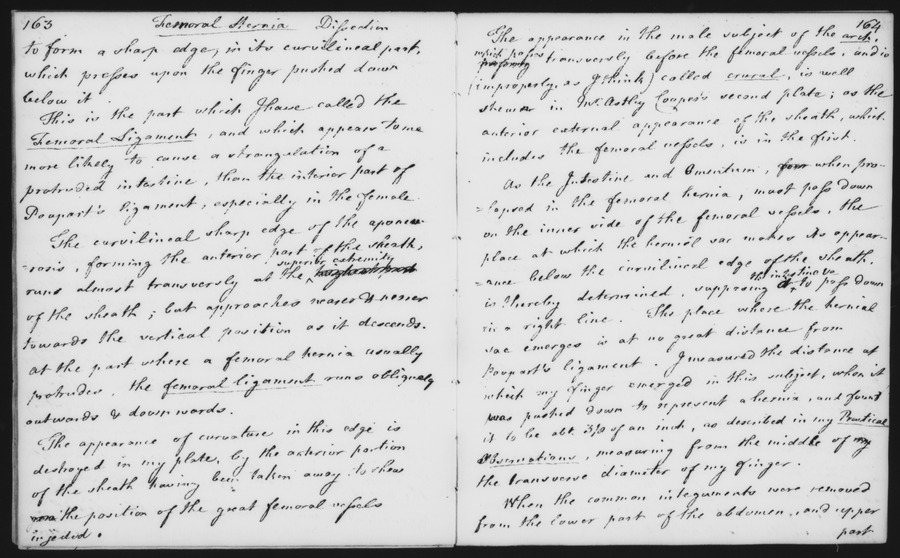 163 Femoral Hernia Dissection
to form a sharp edge, in its curvilineal part,
which presses upon the finger pushed down
below it.
This is the part which I have called the
Femoral Ligament, and which appears to me
more likely to cause a strangulation of a
protruded intestine, than the interior part of
Poupart's ligament, especially in the female.
The curvilineal sharp edge of the aponeu-
-rosis, forming the anterior part of the sheath,
superior extremity
runs almost transversly at the
of the sheath; but approaches nearer & nearer
towards the vertical position as it descends.
At the part where a femoral hernia usually
protrudes, the femoral ligament runs obliquely
outwards & downwards.
The appearance of curvature in this edge is
destroyed in my plate, by the anterior portion
of the sheath having been taken away to shew
the position of the great femoral vessels
injected.
164
The appearance in the male subject of the arch,
which passes transversly before the femoral vessels, and is
(improperly, as I think) called crural, is well
shewn in Mr. Astley Cooper's second plate; as the
anterior external appearance of the sheath, which
includes the femoral vessels, is in the first.
As the Intestine and Omentum, when pro-
-lapsed in the femoral hernia, must pass down
on the inner side of the femoral vessels, the
place at which the hernial sac makes its appear-
-ance below the curvilineal edge of the sheath,
is thereby determined, supposing the intestine &c to pass down
in a right line. The place where the hernial
sac emerges is at no great distance from
Poupart's ligament. I measured the distance at
which my finger emerged in this subject, when it
was pushed down to represent a hernia, and found
it to be abt. 3/8 of an inch, as described in my Practical
Observations, measuring from the middle of
the transverse diameter of my finger.
When the common integuments were removed
from the lower part of the abdomen, and upper
part